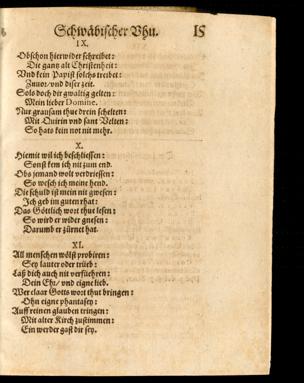 Schwäbischer Vhu. 15
IX.
Obschon hierwider schreibet:
Die gantz alt Christenheit:
Vnd kein Papist solchs treibet:
Zuuor/ vnd diser zeit.
Sols doch dir gwaltig gelten:
Mein lieber Domine.
Nur grausam thue drein schelten:
Mit Quirin vnd sant Velten:
So hats kein not nit mehr.
X.
Hiemit wil ich beschliessen:
Sonst kem ich nit zum end.
Obs jemand wolt verdriessen:
So wesch ich meine hend.
Die schuld ist mein nit gwesen:
Ich geb im guten rhat:
Das Göttlich wort thut lesen:
So wird er wider gnesen:
Darumb er zürnet hat.
XI.
All menschen wölst probiren:
Sey lauter oder trüeb:
Laß dich auch nit verfuehren:
Dein Ehr/ vnd eigne lieb.
Wer claar Gotts wort thut bringen:
Ohn eigne phantasey:
Auff reinen glauben tringen:
Mit alter Kirch zustimmen:
Ein werder gast dir sey.